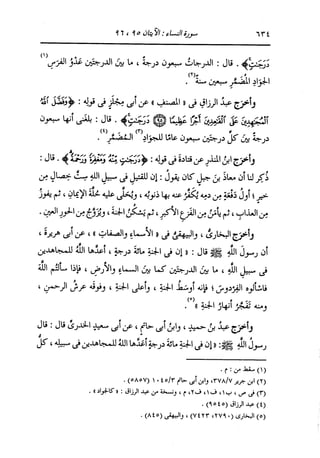 ٦٣٤ سورة النساء : الآيتان ٩٥ ، ٩٦
دَرَجَاتٍ﴾ . قال : الدرجاتُ سبعون درجةً ، ما بينَ الدرجتين عَدْوُ الفرسِ (١)
الجوادِ المُضَمَّرِ سبعين سنةً (٢) .
وأخرَج عبدُ الرزاقِ فى « المصنفِ » عن أبى مِجْلَزٍ فى قوله : ﴿وَفَضَّلَ اللَّهُ
الْمُجَاهِدِينَ عَلَى الْقَاعِدِينَ أَجْرًا عَظِيمًا (٩٥) دَرَجَاتٍ﴾ . قال : بلَغنى أنها سبعون
درجةً بينَ كلِّ درجتين سبعون عامًا للجوادِ (٣) المُضَمَّرِ (٤) .
وأخرَج ابنُ المنذرِ عن قتادةَ فى قوله : ﴿دَرَجَاتٍ مِنْهُ وَمَغْفِرَةً وَرَحْمَةً﴾ . قال :
ذُكِر لنا أن معاذَ بنَ جبلٍ كان يقولُ : إن للقتيلِ فى سبيلِ اللهِ ستَّ خصالٍ من
خيرٍ ؛ أولُ دَفْعةٍ من دمِه يُكَفَّرُ عنه بها ذنوبُه ، ويُحَلَّى عليه حُلَّةَ الإيمانِ ، ثم يفوزُ
من العذابِ ، ثم يأمَنُ من الفزعِ الأكبرِ ، ثم يَسْكُنُ الجنةَ ، ويُزَوَّجُ من الحورِ العينِ .
وأخرَج البخارىُّ ، والبيهقىُّ فى « الأسماءِ والصفاتِ » ، عن أبى هريرةَ ،
أن رسولَ اللهِ ﷺ قال : « إن فى الجنةِ مائةَ درجةٍ ، أعدَّها اللهُ للمجاهدين
فى سبيلِ اللهِ ، ما بينَ الدرجتين كما بينَ السماءِ والأرضِ ، فإذا سألتم اللهَ
فاسألوه الفِرْدوسَ ؛ فإنه أوسطُ الجنةِ ، وأعلى الجنةِ ، وفوقَه عرشُ الرحمنِ ،
ومنه تَفَجَّرُ أنهارُ الجنةِ » (٥) .
وأخرَج عبدُ بنُ حميدٍ ، وابنُ أبى حاتمٍ ، عن أبى سعيدٍ الخدرىِّ قال : قال
رسولُ اللهِ ﷺ : « إن فى الجنةِ مائةَ درجةٍ أعدَّها اللهُ للمجاهدين فى سبيلِه ، كلُّ
(١) سقط من : م .
(٢) ابن جرير ٣٧٨/٧، وابن أبى حاتم ١٠٤٥/٣ (٥٨٥٧) .
(٣) فى ص ، ب١، ف١، ف٢، م ، ونسخة من عبد الرزاق : « كالجواد » .
(٤) عبد الرزاق (٩٥٤٥) .
(٥) البخارى (٢٧٩٠، ٧٤٢٣) ، والبيهقى (٨٤٥) .